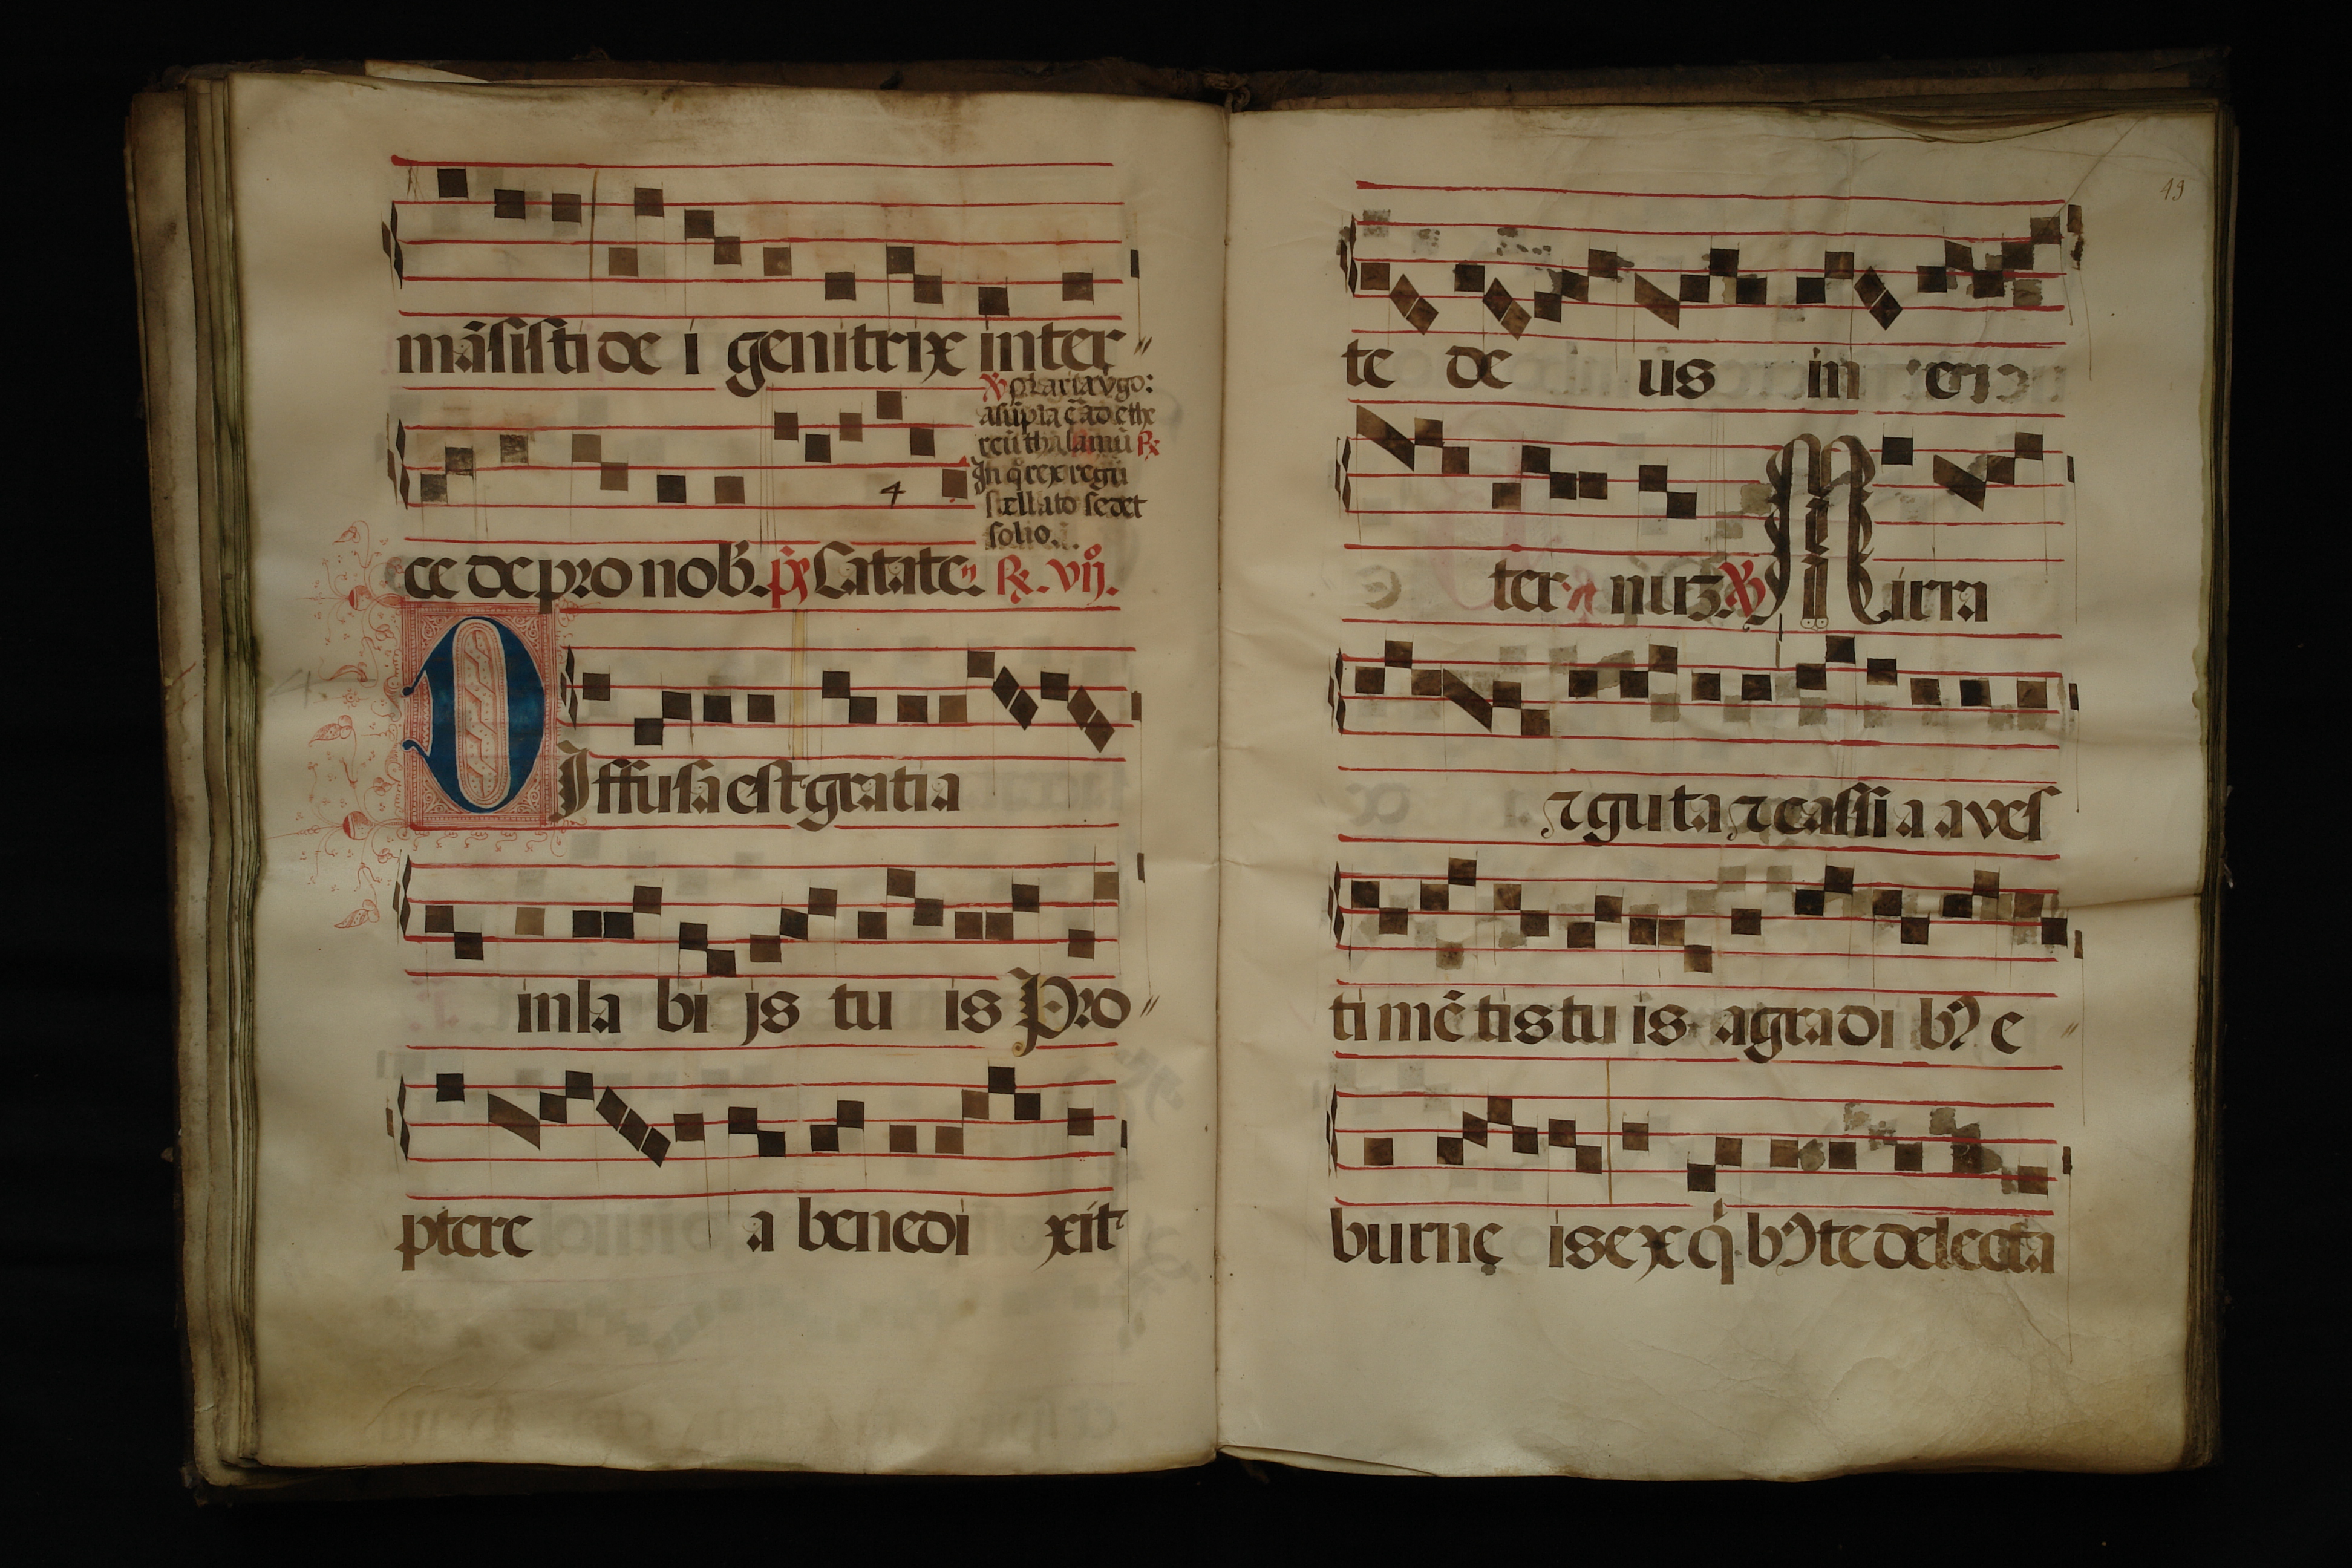 mãsisti de i genitrix inter〃
℣ Maria v̾go:
asũpta ẽ ad ethe
reũ thalamũ ℟
In q̊ rex regũ
stellato sedet
solio.
ce de pro nob̾. p̾s Latate. ℟. vij.
DIffusa est gratia
in la bi js tu is Pro〃
ptere a benedi xit
19
te de us in
ter nuʒ. ℣ Mirra
⁊ guta ⁊ cassi a a ves
ti mẽ tis tu is a gradi bꝰ e 〃
burnę is ex q̇ bꝰ te delecta